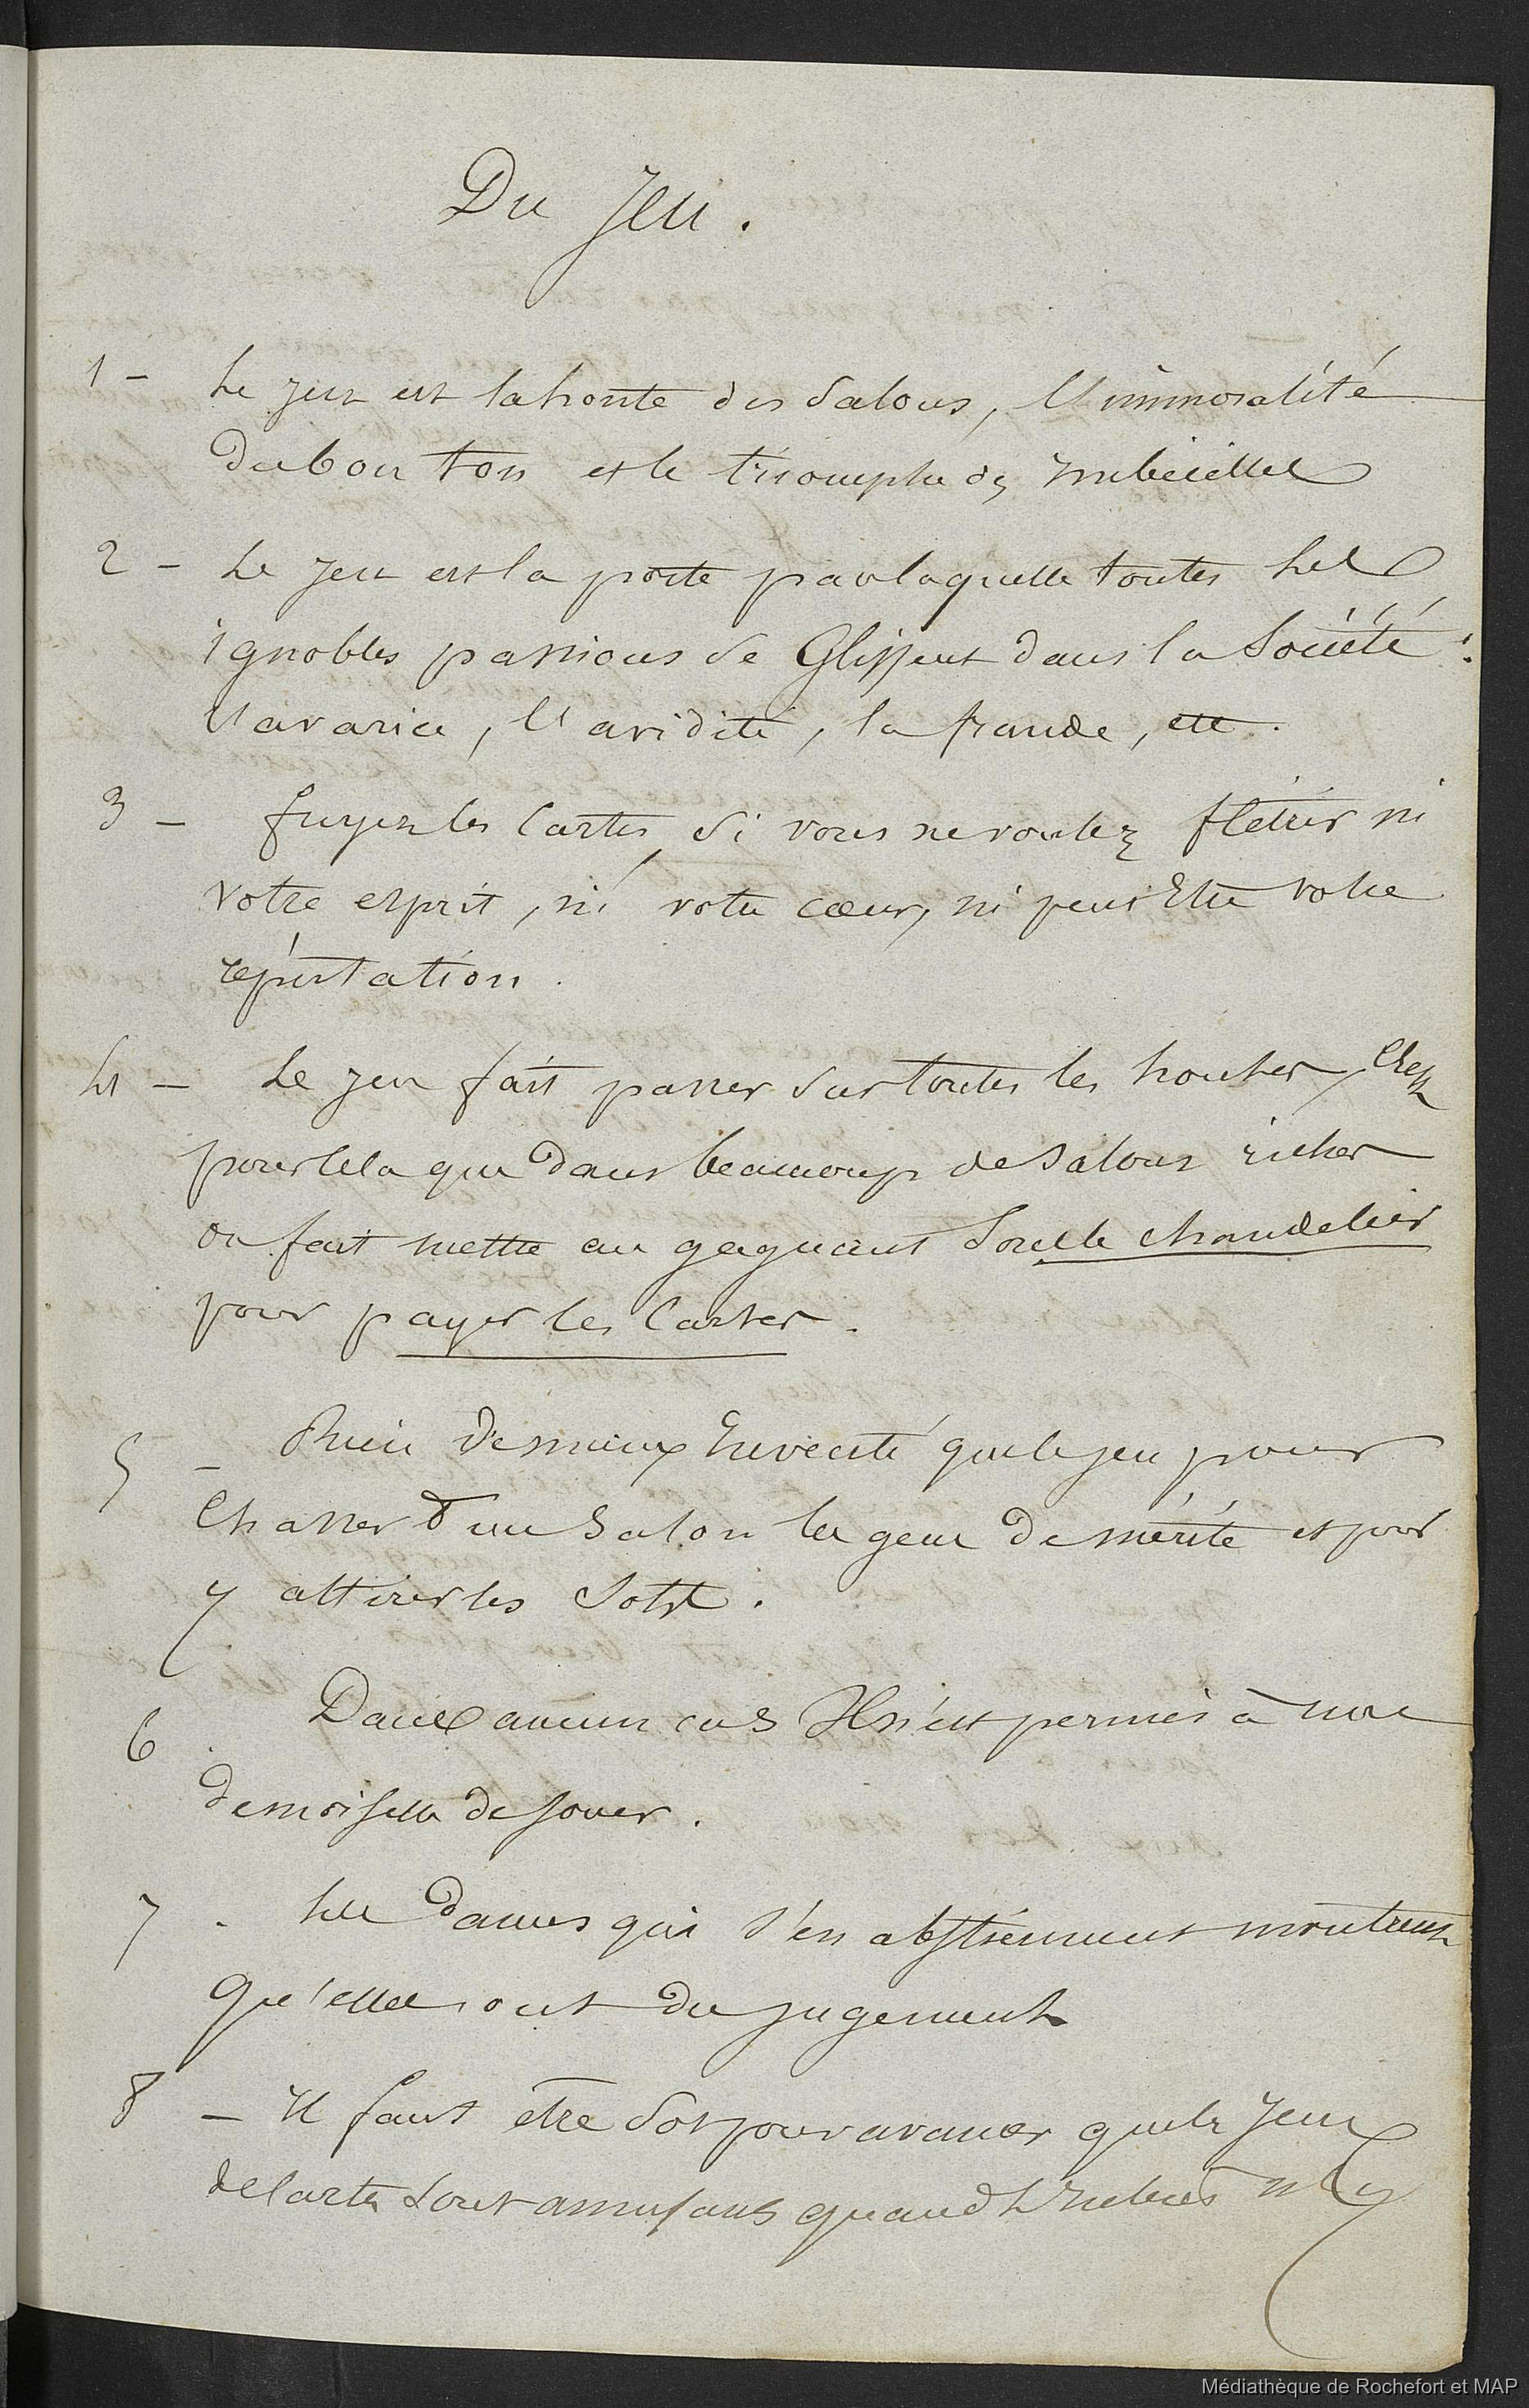 Du Jeu.
1 - Le jeu est la honte des Salons, l'immoralité
du bon ton et le triomphe des imbécilles
2 - Le jeu est la porte par laquelle toutes les
ignobles passions se Glissent dans la Société :
l'avarice, l'avidité, la fraude, etc.
3 - fuyez les Cartes, si vous ne voulez flétrir ni
votre esprit, ni votre cœur, ni peut Etre votre
réputation.
4 - Le jeu fait passer sur toutes les hontes, C'est
pour Cela que dans beaucoup de Salons riches
on fait mettre au gagnant Sous le chandelier
pour payer les Cartes.
5 - Rien de mieux Inventé que le jeu pour
Chasser d'un Salon les gens de mérite et pour
y attirer les Sots.
6. Dans aucun cas Il n'est permis à une
demoiselle de Jouer.
7. Les Dames qui s'en abstiennent montrent
Qu'elles ont du jugement
8 - Il faut être Sot pour avancer que les Jeux
de Cartes Sont amusans quand L'Intérêt n'y
Médiathèque de Rochefort et MAP